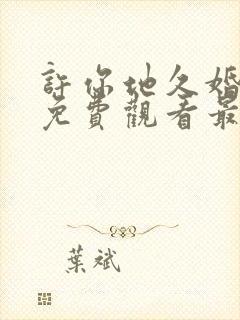 許你地久婚
免費觀看最
葉斌